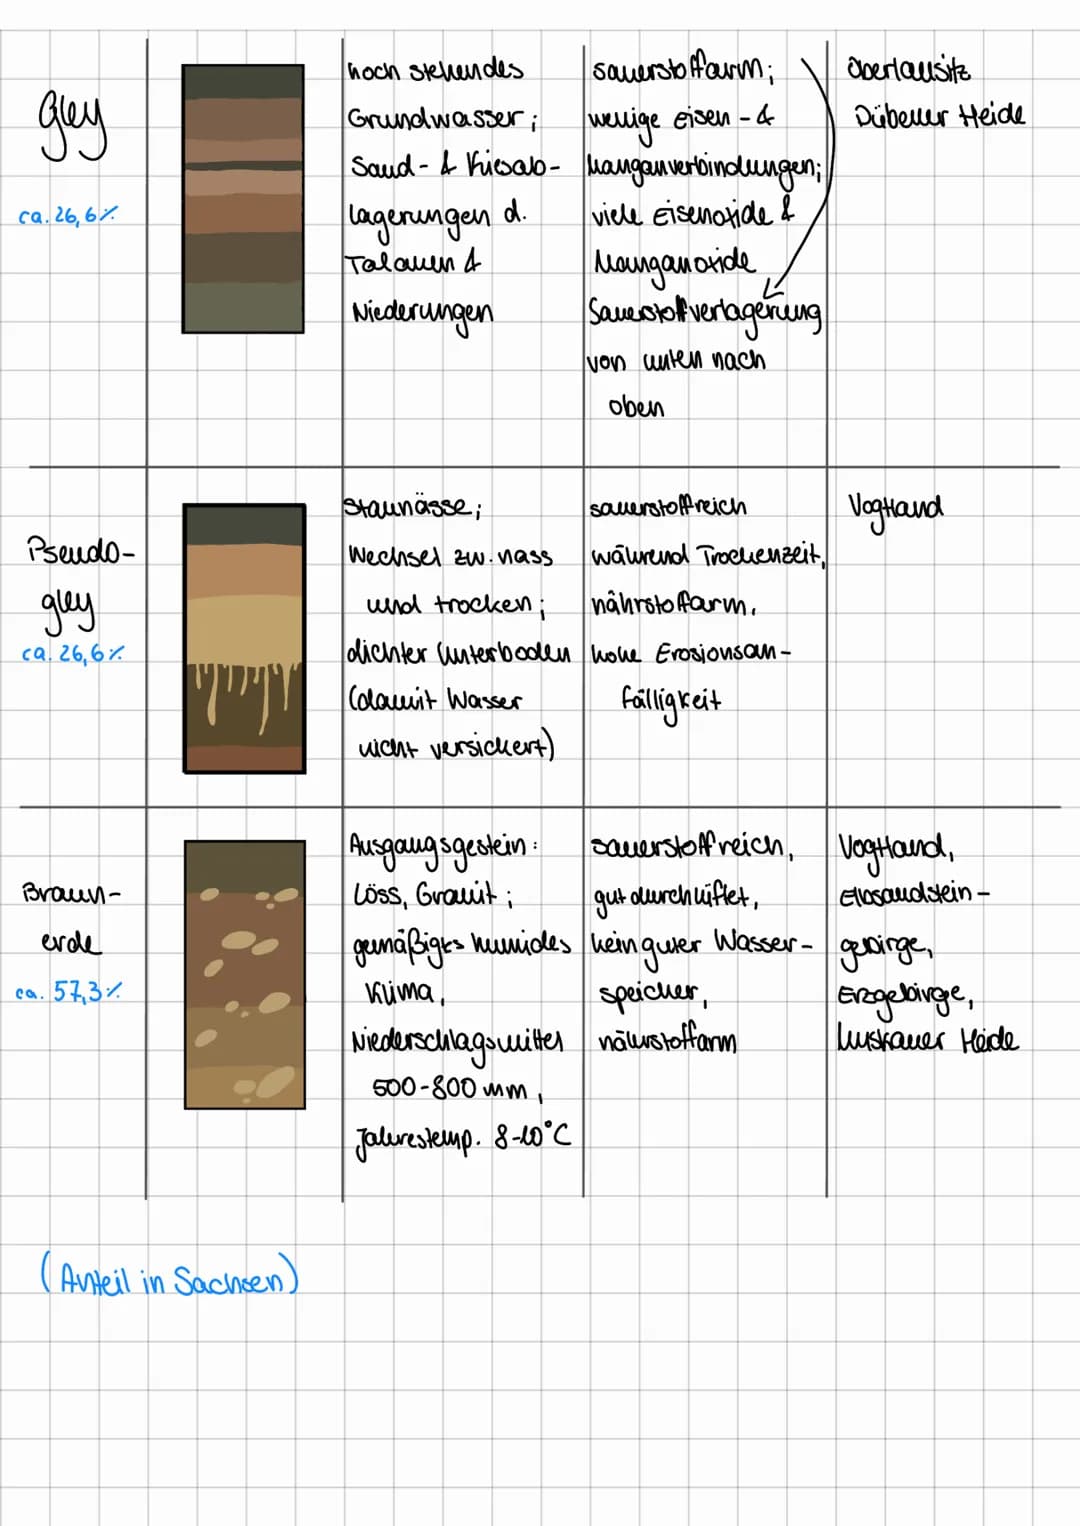 Gley
ca. 26,6%
hoch stehendes
Grundwasser;
Sand- & Kiesab-
lagerungen d.
Talauen &
Niederungen
sauerstoffarm;
wenige Eisen- &
Manganverbindungen;
viele Eisenoxide &
Manganoxide
Sauerstoffverlagerung
von unten nach
oben
Oberlausitz
Dübener Heide
Pseudo-
gley
ca. 26,6%
Staunässe;
Wechsel zw. nass
und trocken;
dichter Unterboden
(damit Wasser
nicht versickert)
sauerstoffreich
während Trockenzeit,
nährstoffarm,
hohe Erosionsan-
fälligkeit
Vogtland
Braun-
erde
ca. 57,3%
Ausgangsgestein:
Löss, Granit;
gemäßigtes humides
Klima,
Niederschlagsmittel
500-800 mm,
Jahrestemp. 8-10°C
sauerstoffreich,
gut durchlüftet,
kein guter Wasser-
speicher,
nährstoffarm
Vogtland,
Elbsandstein-
gebirge,
Erzgebirge,
Muskauer Heide
(Anteil in Sachsen)